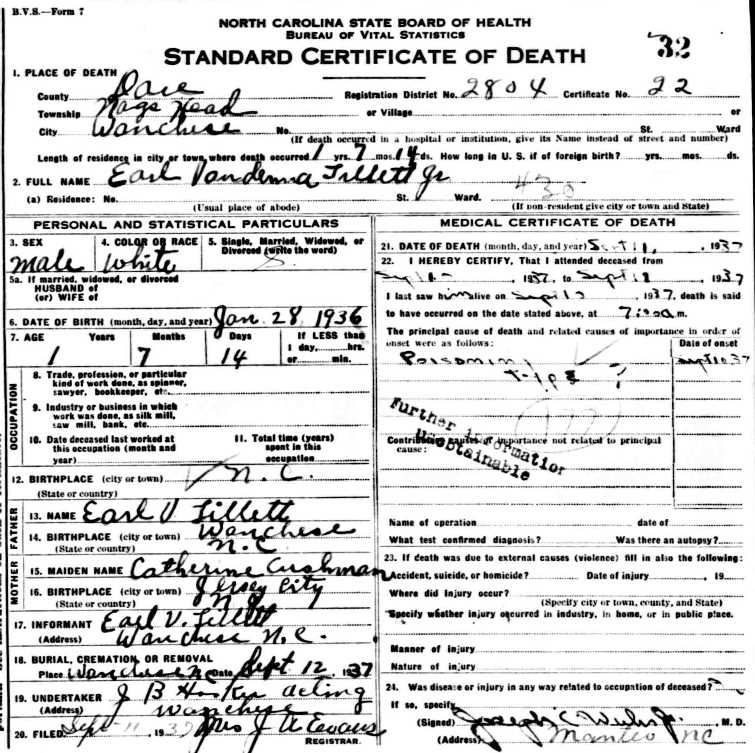 B.V.S.—Form 7
NORTH CAROLINA STATE BOARD OF HEALTH
BUREAU OF VITAL STATISTICS
STANDARD CERTIFICATE OF DEATH
32
1. PLACE OF DEATH
County Dare Registration District No. 2804 Certificate No. 22
Township Nags Head or Village or
City Wanchese No. St. Ward
(If death occurred in a hospital or institution, give its Name instead of street and number)
Length of residence in city or town where death occurred 1 yrs. 7 mos. 14 ds. How long in U. S. if of foreign birth? yrs. mos. ds.
2. FULL NAME Earl Tillett Jr
(a) Residence: No. St. Ward.
(Usual place of abode) (If non-resident give city or town and State)
PERSONAL AND STATISTICAL PARTICULARS
3. SEX 4. COLOR OR RACE 5. Single, Married, Widowed, or Divorced (write the word)
male White S.
5a. If married, widowed, or divorced
HUSBAND of
(or) WIFE of
6. DATE OF BIRTH (month, day, and year) Jan. 28, 1936
7. AGE Years Months Days If LESS than
1 day, hrs.
1 7 14 or min.
OCCUPATION
8. Trade, profession, or particular
kind of work done, as spinner,
sawyer, bookkeeper, etc.
9. Industry or business in which
work was done, as silk mill,
saw mill, bank, etc.
10. Date deceased last worked at
this occupation (month and
year)
11. Total time (years)
spent in this
occupation
12. BIRTHPLACE (city or town) N. C.
(State or country)
FATHER
13. NAME Earl V Tillett
14. BIRTHPLACE (city or town) Wanchese
(State or country) N. C
MOTHER
15. MAIDEN NAME Catherine Cushman
16. BIRTHPLACE (city or town) Jersey City
(State or country) N J
17. INFORMANT Earl V. Tillett
(Address) Wanchese N. C.
18. BURIAL, CREMATION, OR REMOVAL
Place Wanchese NC Date Sept 12 1937
19. UNDERTAKER J B acting
(Address) Wanchese
20. FILED Sept 11 1937 Mrs J A Evans
REGISTRAR.
MEDICAL CERTIFICATE OF DEATH
21. DATE OF DEATH (month, day, and year) Sept 11, 1937
22. I HEREBY CERTIFY, That I attended deceased from
Sept 1937, to Sept 1937
I last saw him alive on Sept 1937, death is said
to have occurred on the date stated above, at m.
The principal cause of death and related causes of importance in order of
onset were as follows: Date of onset
Poisoning Sept 10 37
type ?
Further information
Unobtainable
Contributory causes of importance not related to principal
cause:
Name of operation date of
What test confirmed diagnosis? Was there an autopsy?
23. If death was due to external causes (violence) fill in also the following:
Accident, suicide, or homicide? Date of injury , 19
Where did injury occur?
(Specify city or town, county, and State)
Specify whether injury occurred in industry, in home, or in public place.
Manner of injury
Nature of injury
24. Was disease or injury in any way related to occupation of deceased?
If so, specify
(Signed) Joseph C M. D.
(Address) Manteo NC